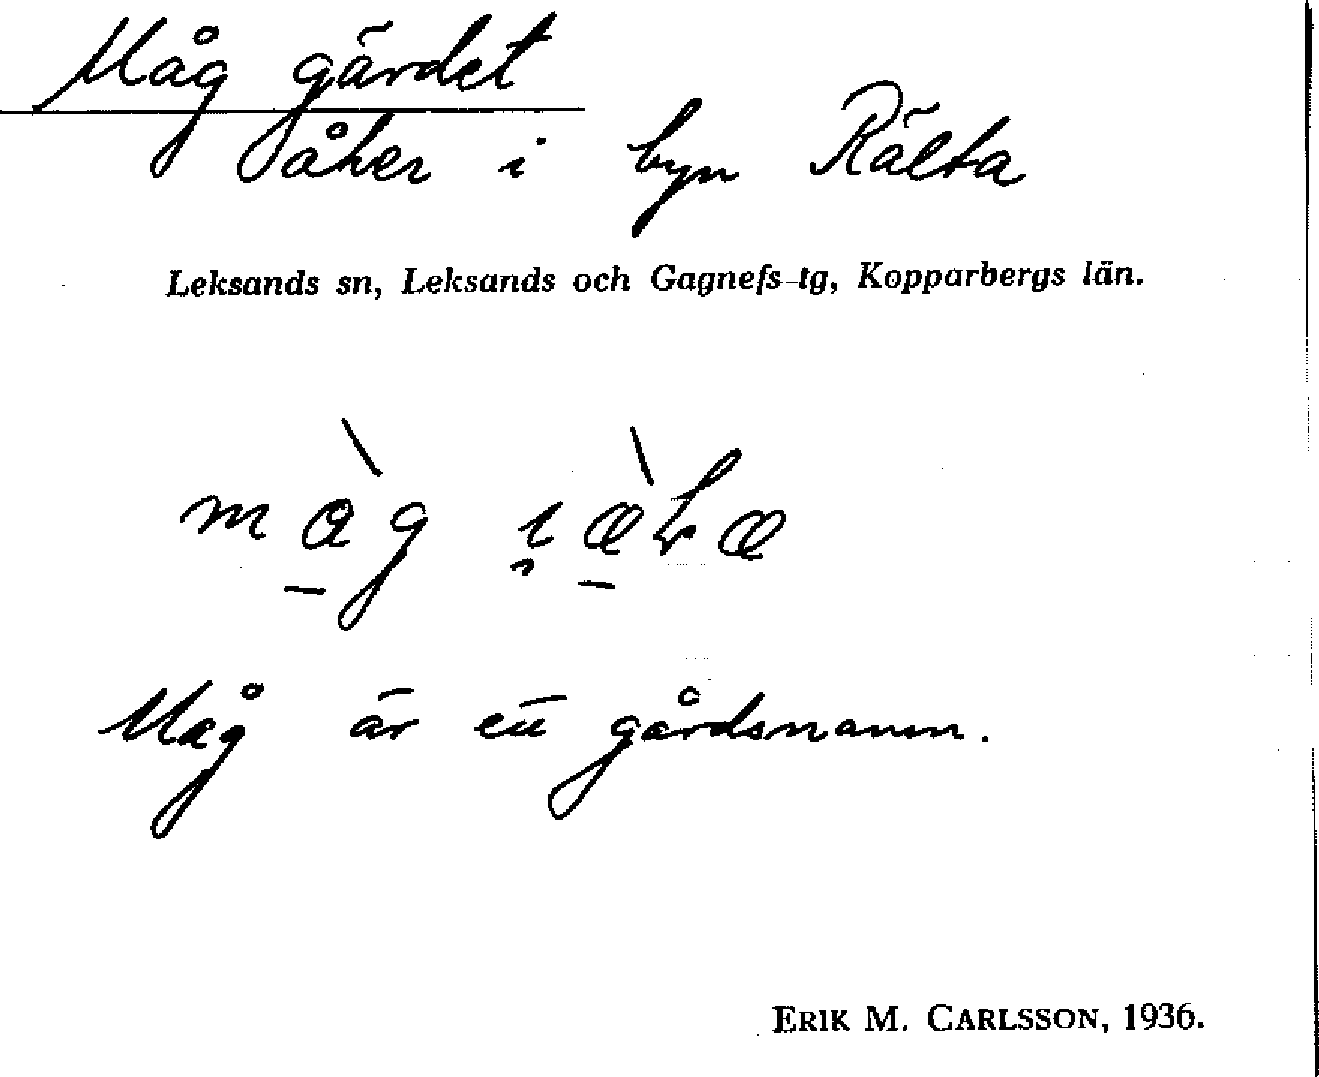 Måg gärdet
åker i byn Rälta
Leksands sn, Leksands och Gagnefs tg, Kopparbergs län.
Måg är ett gårdsnamn.
ERIK M. CARLSSON, 1936.